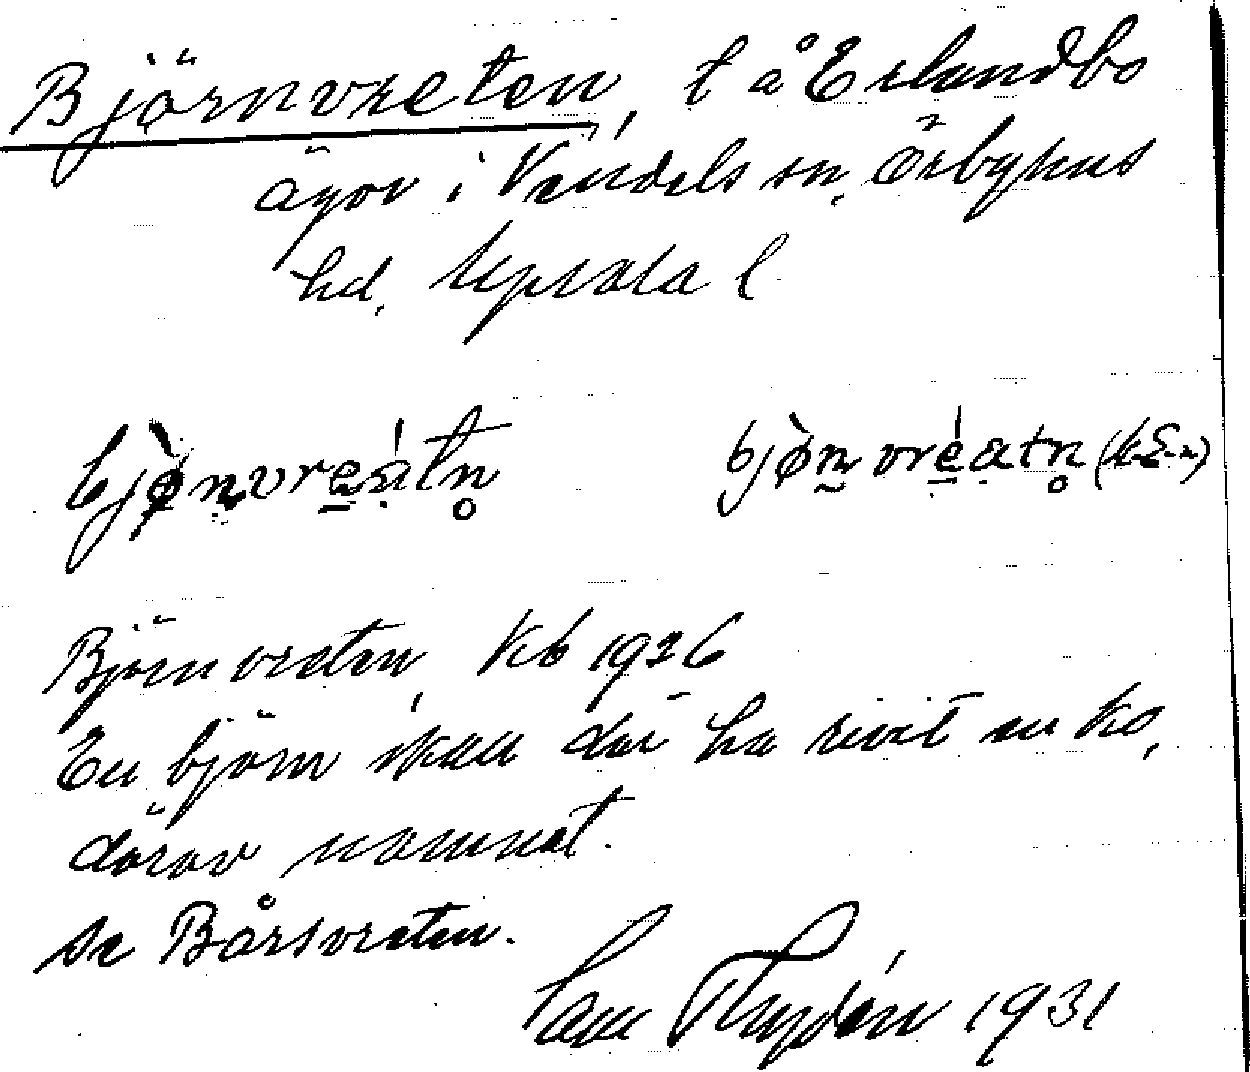 Björnvreten, t å Erlandbo
ägor i Vendels sn, Örbyhus
hd, Uppsala l
bjø̀nvreátn̥ bjø̀n vréatn̥
Björnvreten, Kb 1926
En björn skall där ha rivit en ko,
därav namnet.
se Bårsvreten.
1931